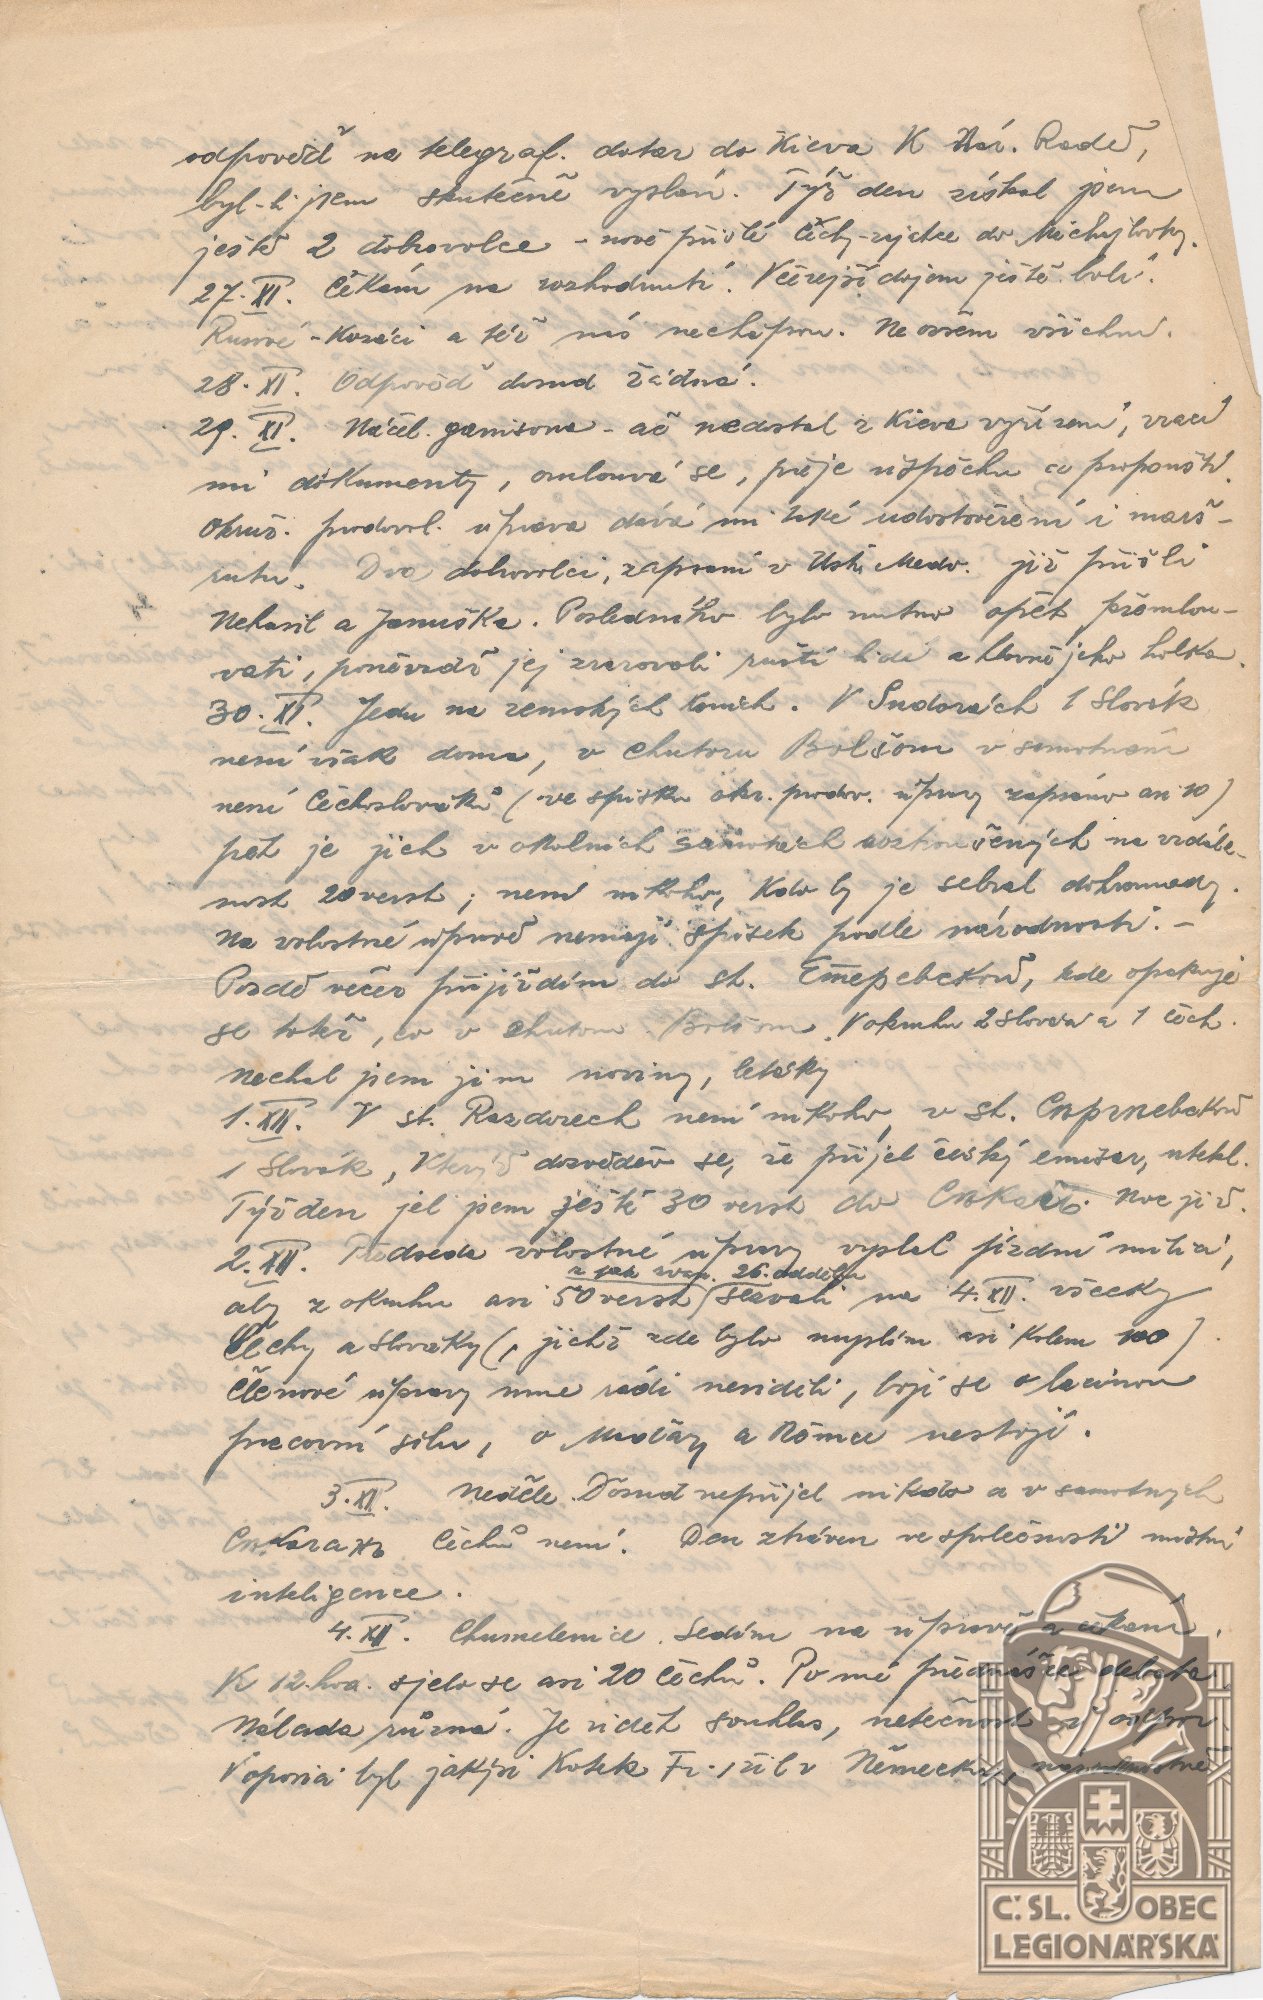 odpověď na telegraf. dotaz do Kieva K Nár. Radě,
byl-li jsem skutečně vyslán. Týž den získal jsem
ještě 2 dobrovolce - nově přišlé Čechy-zajatce do Michajlovky.
27. XI. Čekám na rozhodnutí. Včerejší dojem ještě bolí.
Rusové - Kozáci a též nás nechápou. Ne ovšem všichni.
28. XI. Odpověď dosud žádná.
29. XI. Náčel. garnisona - ač nedostal z Kieva vyřízení, vrací
mi dokumenty, omlouvá se, přeje úspěchu a propouští.
Okruž. prodovol. uprava dává mi také udostověření i marš-
rutu. Dva dobrovolci, zapsaní v Ustí Medv. již přišli
Nehasil a Januška. Posledního bylo nutno opět přemlou-
vati, poněvadž jej zrazovali ruští lidé a hlavně jeho holka.
30. XI. Jedu na zemských koních. V Sudorách 1 Slovák
není však doma, v chutoru Bolšom v samotném
není Čechoslováků (ve spisku okr. prodov. upravy zapsáno asi 10)
pět je jich v okolních samotách roztroušených na vzdále-
nost 20 verst; není nikoho, Kdo by je sebral dohromady.
Na volostné upravě nemají spisek podle národnosti. -
Pozdě večer přijíždím do st. Етеревской, kde opakuje
se totéž, co v chutoru Bolšom. V okruhu 2 Slováci a 1 Čech.
Nechal jsem jim noviny, letáky
1. XII. V st. Razdorech není nikoho, v st. Сергиевской
1 Slovák, Který dozvěděv se, že přijel český emisar, utekl.
Týž den jel jsem ještě 30 verst do Nocuji.
2. XII. Předseda volostné upravy vyslal jízdní milici,
z tak zvan. 26. oddělu
aby z okruhu asi 50 verst sezvali na 4. XII. všecky
Čechy a Slováky (, jichž zde bylo asi Kolem 100)
Členové upravy mne rádi neviděli, bojí se o lacinou
pracovní sílu, o Maďary a Němce nestojí.
3. XI. Neděle. Dosud nepřijel nikdo a v samotných
Čechů není. Den ztráven ve společnosti místní
inteligence.
4. XII. Chumelenice. Sedím na upravě a čekám.
K 12. hod. sjelo se asi 20 Čechů. Po mé přednášce debata.
Nálada různá. Je vidět souhlas, netečnost i odpor.
V oposici byl jakýsi Kotek Fr., žil v Německu,
Č. SL. OBEC
LEGIONÁŘSKÁ